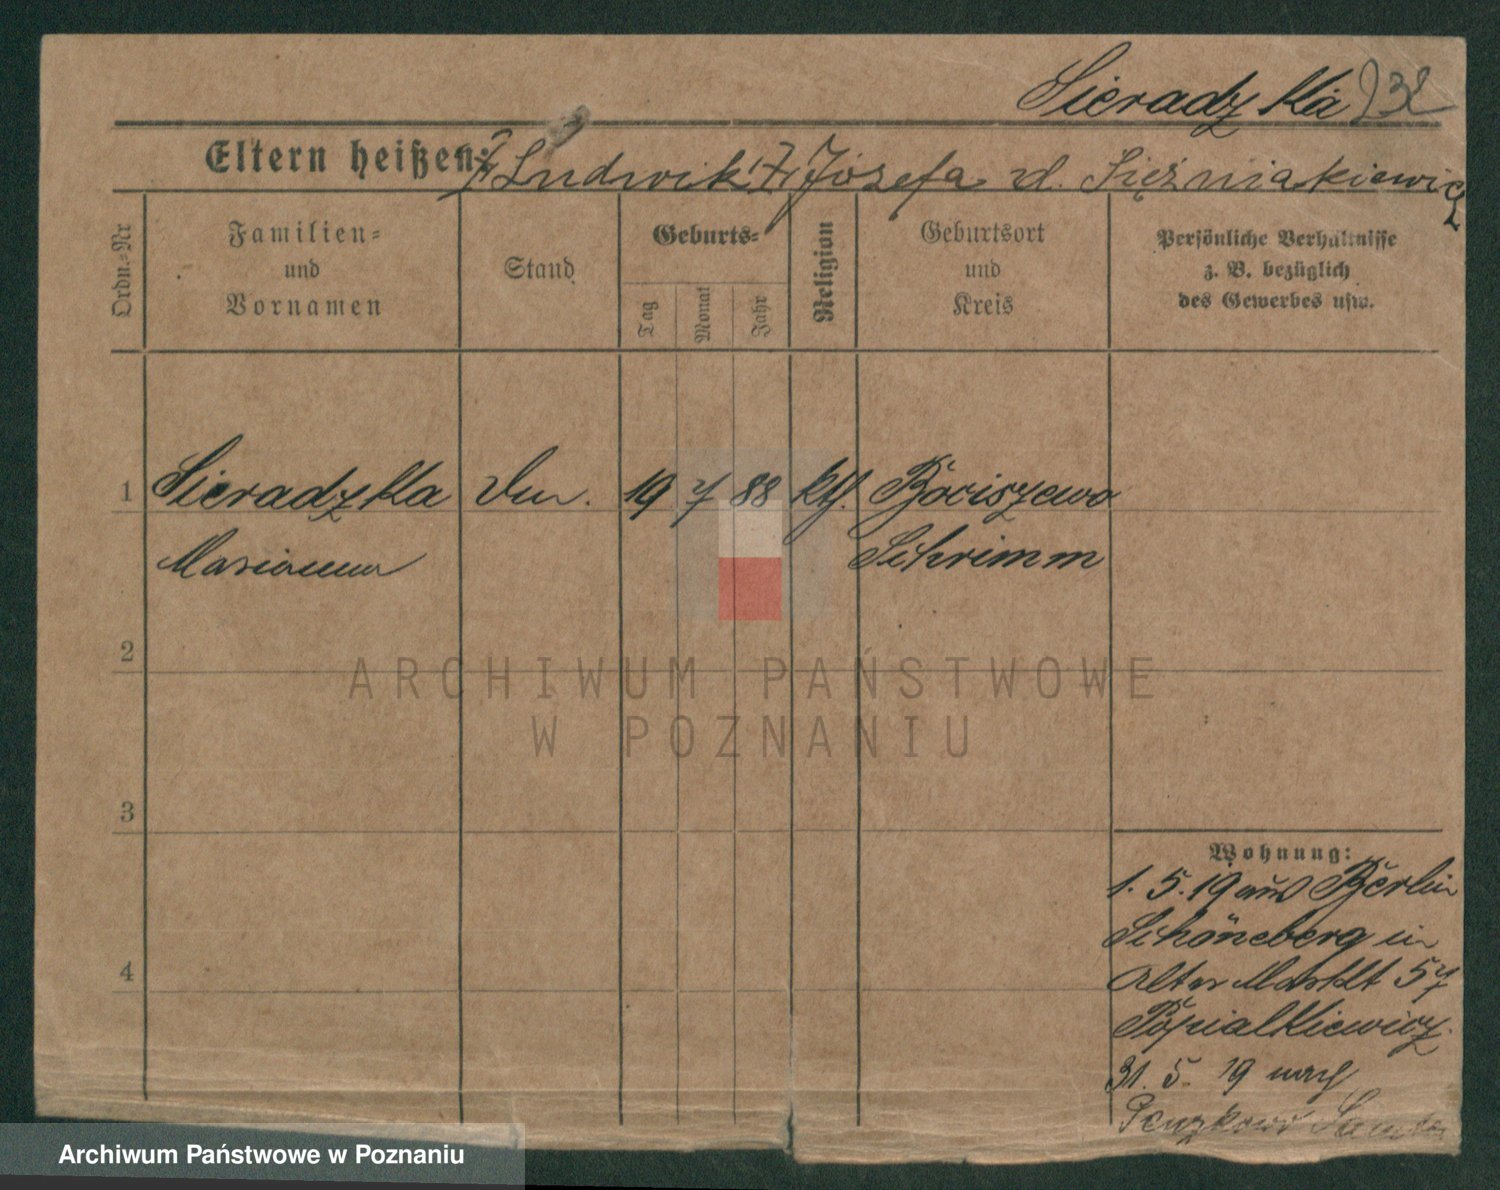 Sieradzka
Eltern heißen: Ludwik Józefa
Ordn.-Nr
Familien-
und
Vornamen
Stand
Geburts-
Tag
Monat
Jahr
Religion
Geburtsort
und
Kreis
Persönliche Verhältnisse
z. B. bezüglich
des Gewerbes usw.
1 Sieradzka 19 7 88 kth. Bociszewo
Marianna Schrimm
2
ARCHIWUM PAŃSTWOWE
W POZNANIU
3
Wohnung:
1. 5. 19 aus Berlin
Schöneberg in
4
Alter Markt 57
Popialkiewicz
31. 5. 19 nach
Archiwum Państwowe w Poznaniu